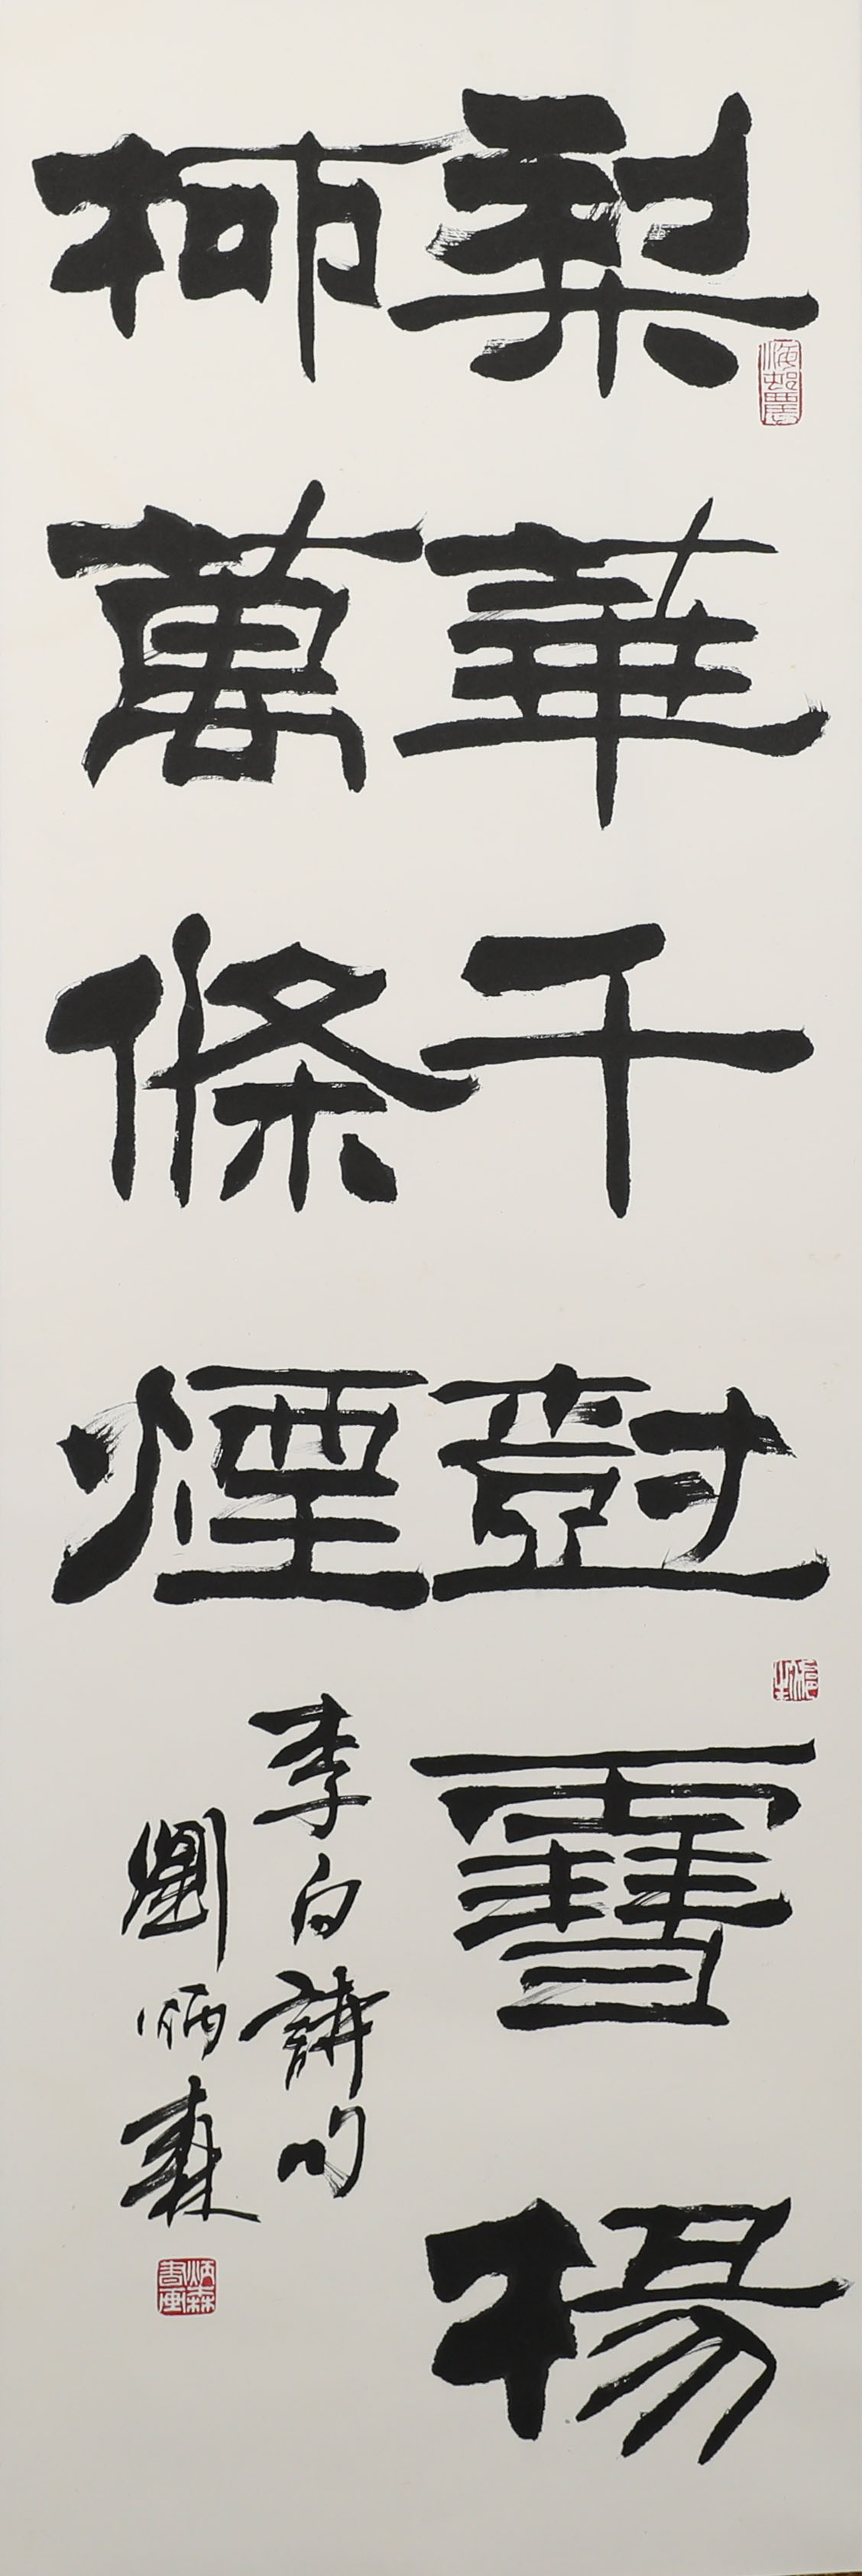 梨華千樹雪楊
柳萬條煙
李白詩句
劉炳森
炳森書畫